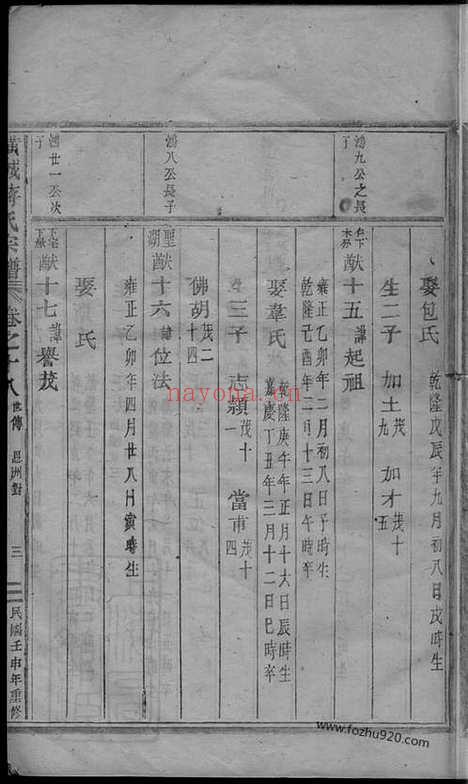 娶包氏 乾隆戊辰年九月初八日戌時生
生二子 加土茂九 加才茂十五
鴻九公之長子
獻十五諱起祖
雍正乙卯年二月初八日子時生
乾隆己酉年二月十三日午時卒
娶韋氏 乾隆庚午年正月十六日辰時生
嘉慶丁丑年三月十二日巳時卒
生三子 志顯茂十一 當市茂十四
佛胡茂二十四
鴻八公長子
獻十六諱位法
雍正乙卯年四月廿八日寅時生
娶 氏
鴻廿一公次子
獻十七諱譽茂
氏宗譜 卷之十八 世傳 恩洲對 三 民國壬申年重修
nayona.cn
www.fozhu920.com